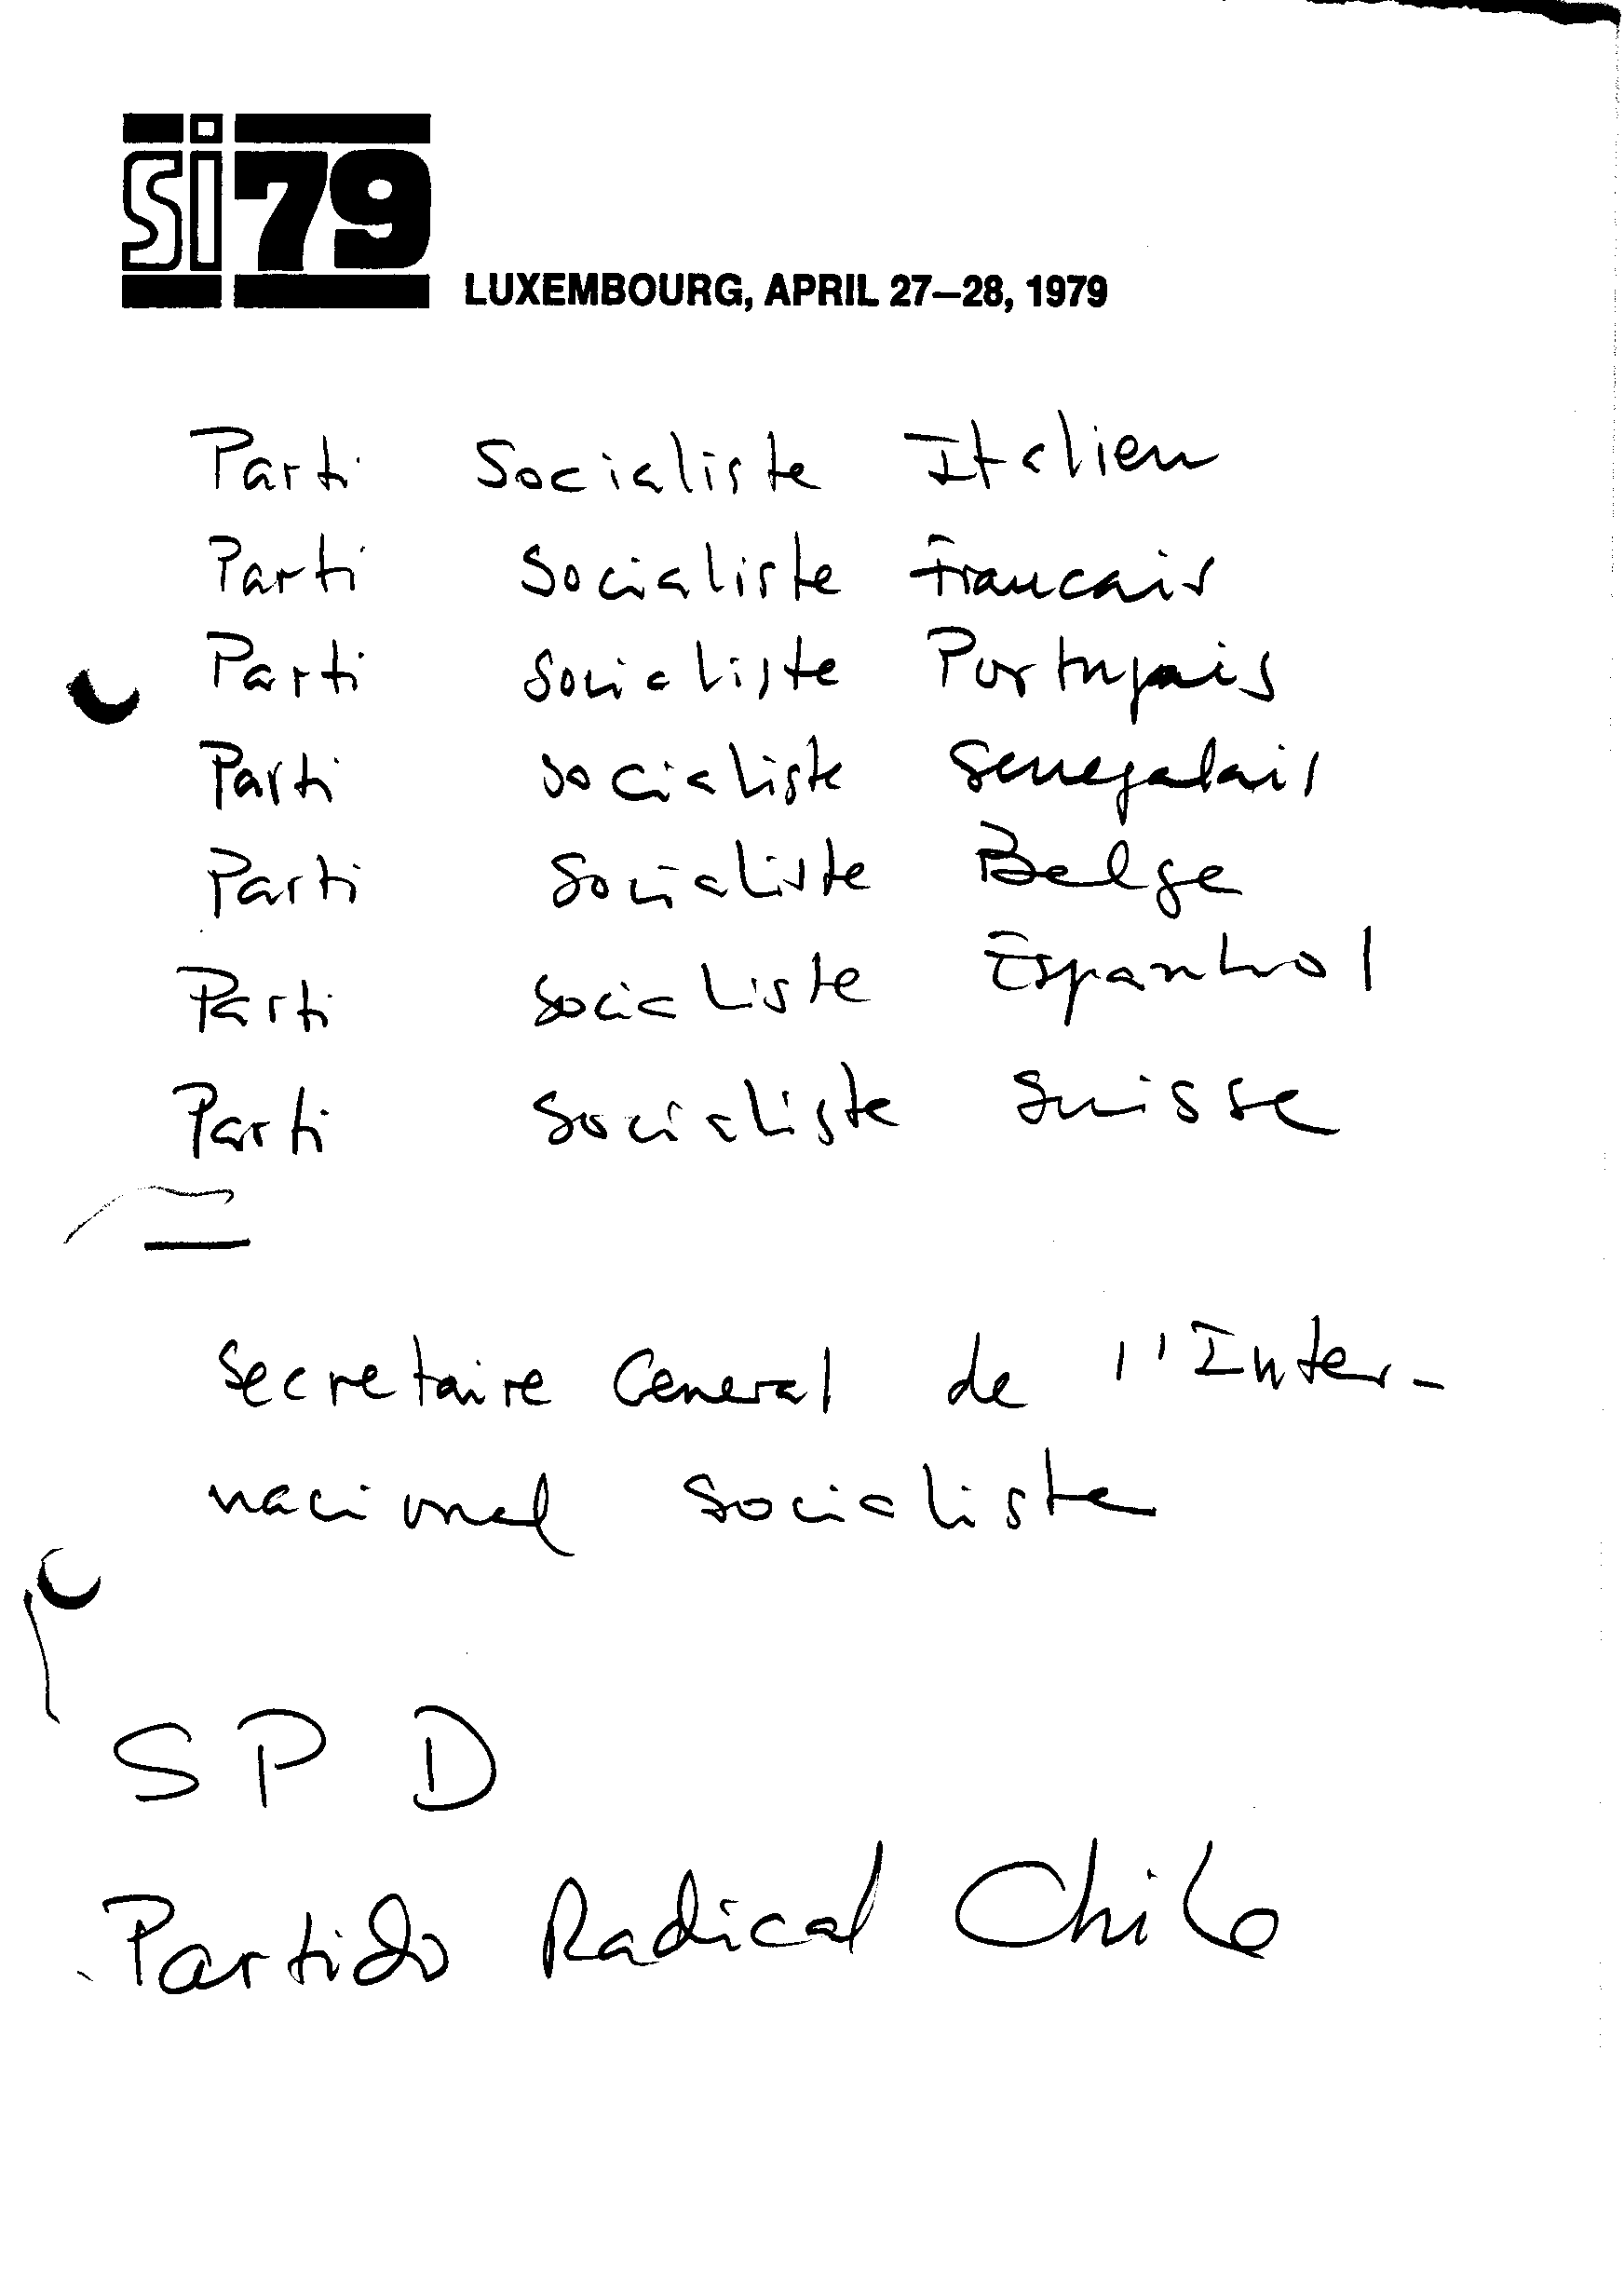 si79
LUXEMBOURG, APRIL 27–28, 1979
Parti Socialiste Italien
Parti Socialiste Francais
Parti Socialiste Portugais
Parti Socialiste Senegalais
Parti Socialiste Belge
Parti Socialiste Espanhol
Parti Socialiste Suisse
Secretaire General de l'Inter-
nacional Socialiste
SPD
Partido Radical Chile